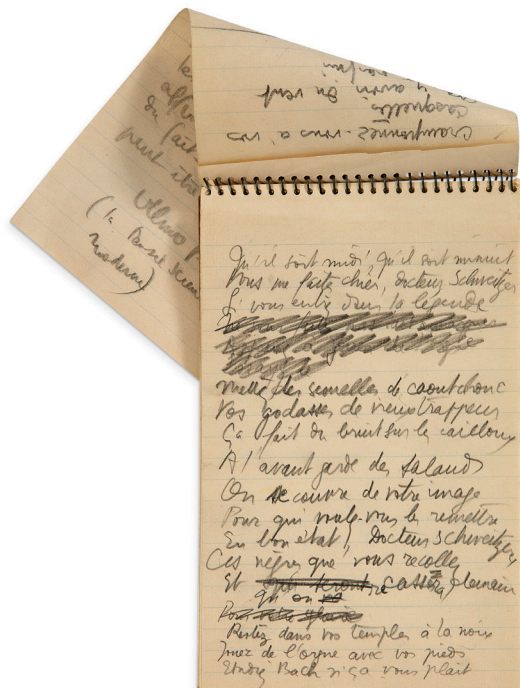 Cramponnez-vous à vos
casquettes
y aura du vent
du fait
peut être
(la Pensée Scien
moderne)
Qu'il soit midi, qu'il soit minuit
Vous me faite chier, Docteur Schweitzer
Si vous entrez dans la légende
mettez des semelles de caoutchouc
Vos godasses de vieux trappeur
Ça fait du bruit sur les cailloux
A l'avant garde des salauds
On se couvre de votre image
Pour qui voulez-vous les remettre
En bon état, Docteur Schweitzer
Ces nègres que vous recollez
Et qu'on recassera demain
Restez dans vos temples à la noix
Jouez de l'orgue avec vos pieds
Etudiez Bach si ça vous plait